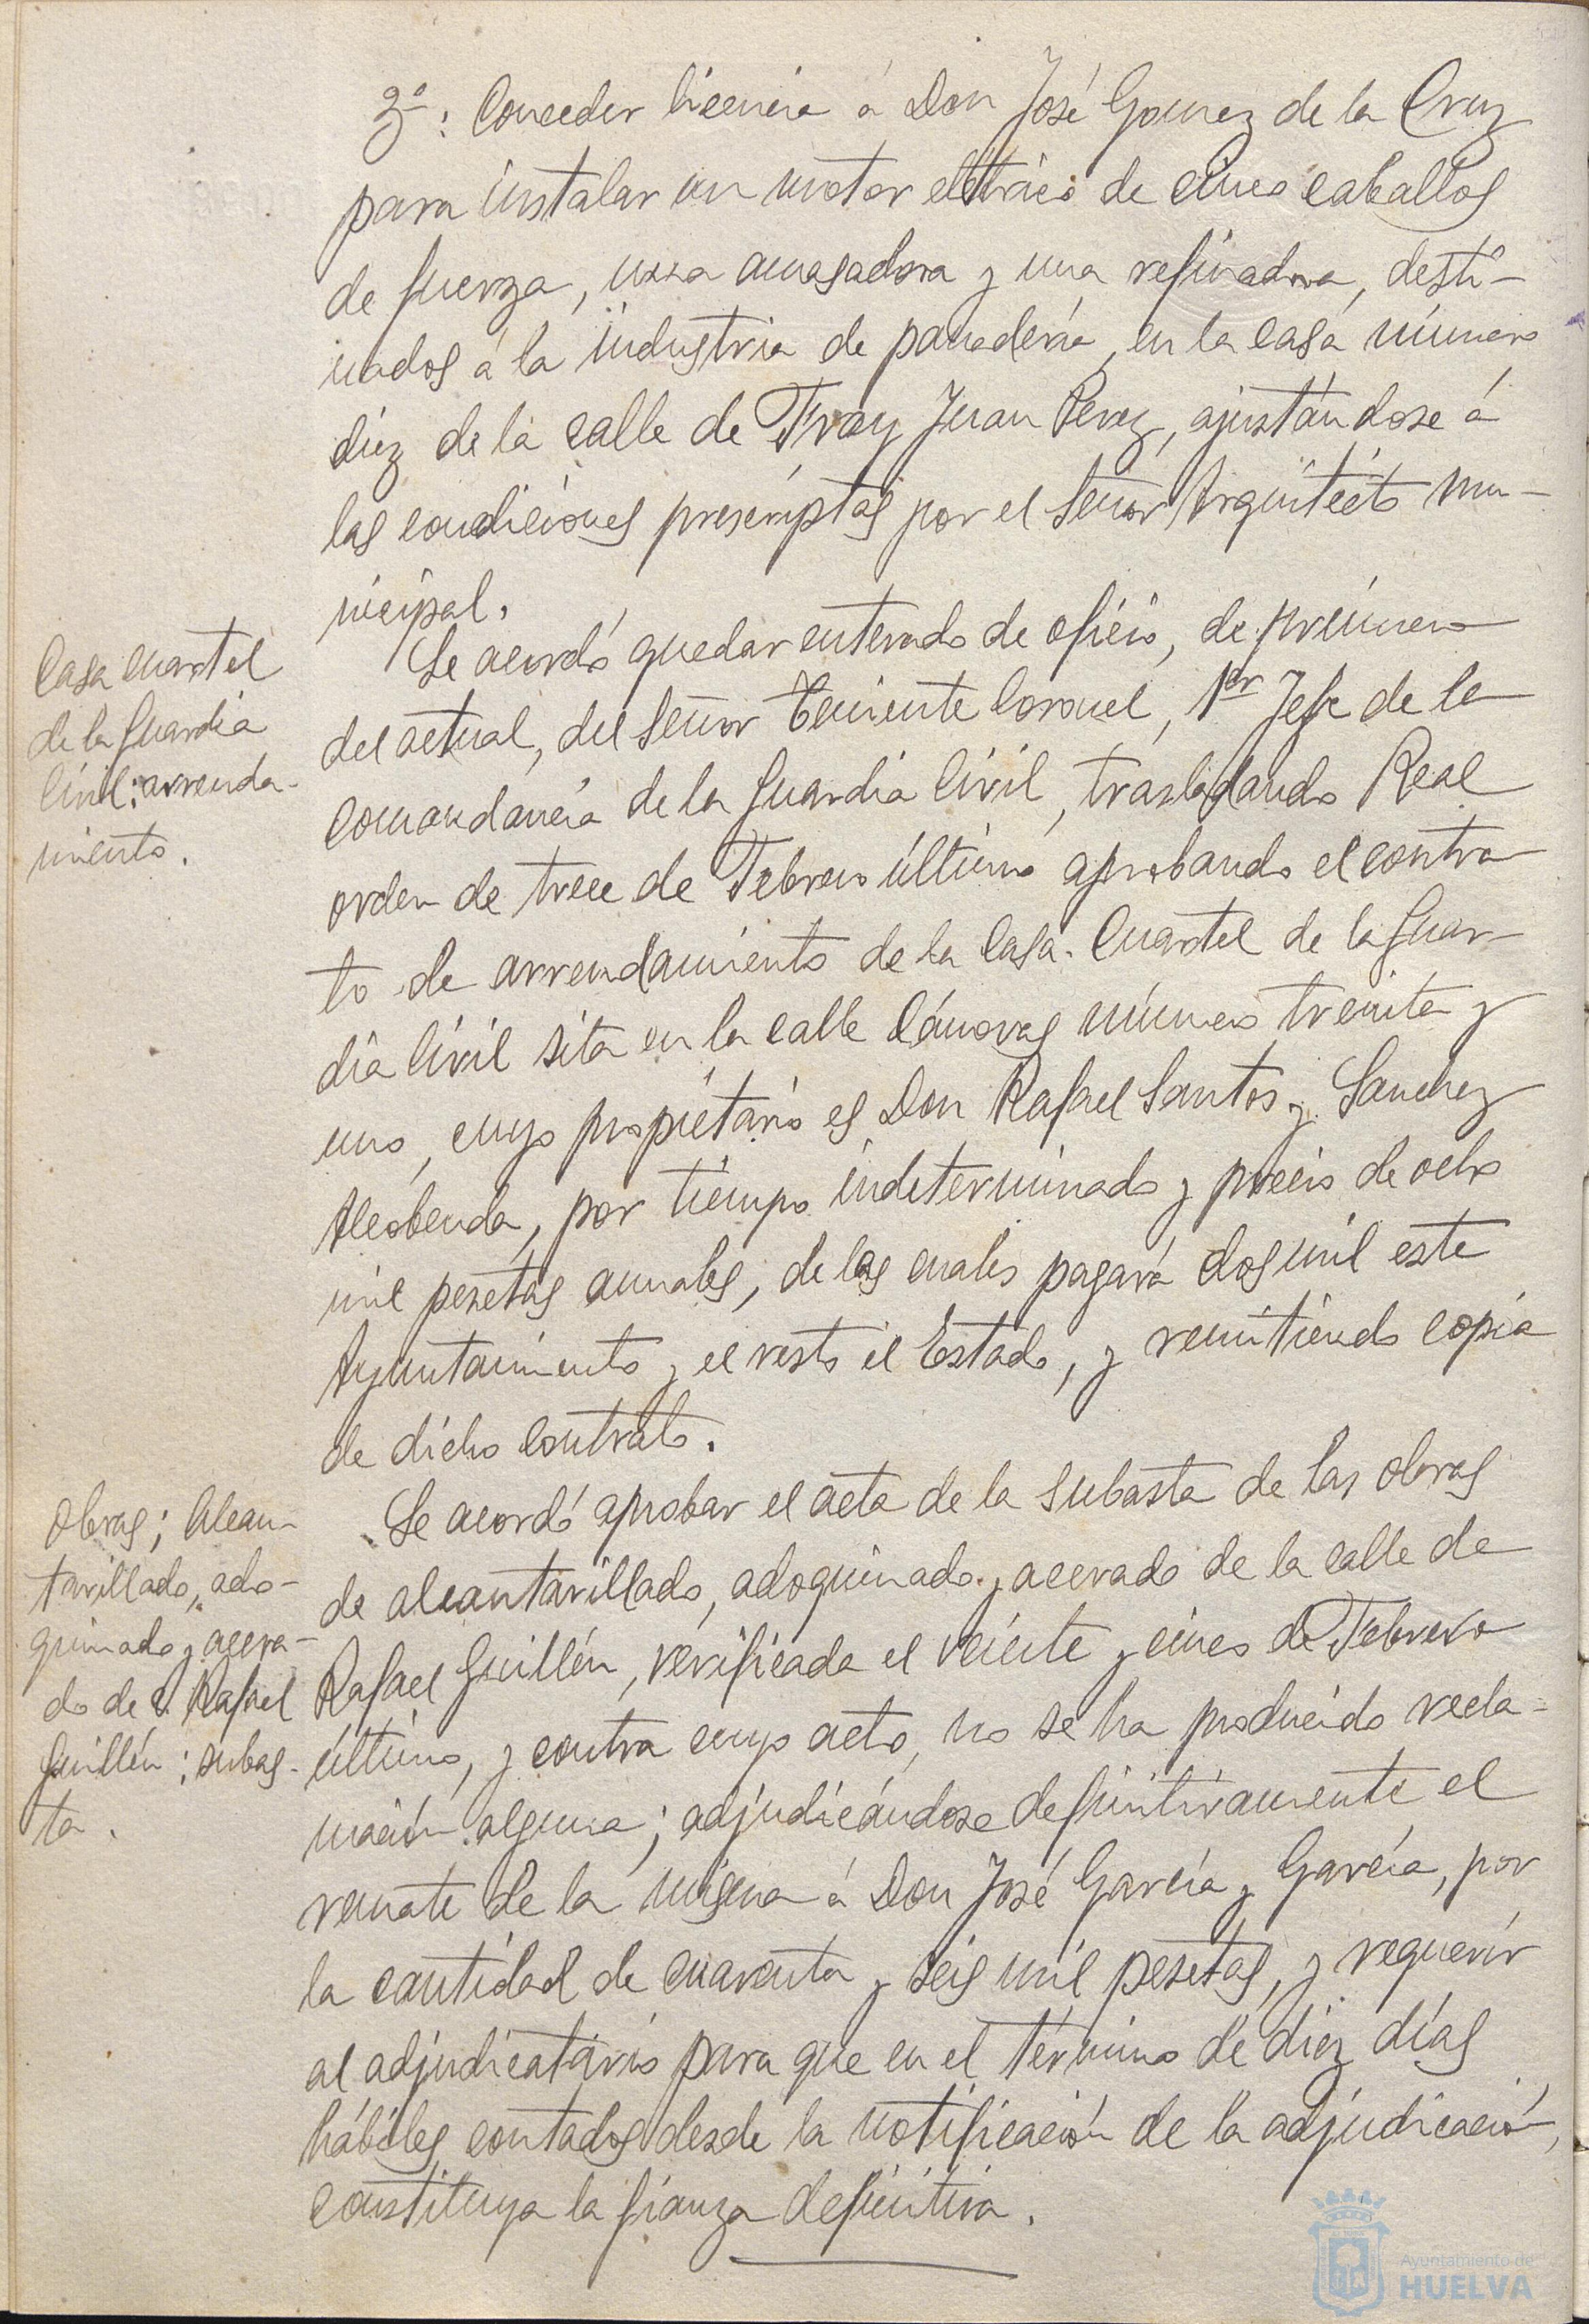 3º: Conceder licencia á Don José Gomez de la Cruz
para instalar un motor eléctrico de cinco caballos
de fuerza, una amasadora y una refinadora, desti-
nados á la industria de panadería, en la casa número
diez de la calle de Fray Juan Perez, ajustándose á
las condiciones prescriptas por el Señor Arquitecto mu-
nicipal.
Casa cuartel
de la Guardia
Civil: arrenda-
miento.
Se acordó quedar enterado de oficio, de primero
del actual, del Señor Teniente Coronel, 1er Jefe de la
Comandancia de la Guardia Civil, trasladando Real
orden de trece de Febrero último aprobando el contra
to de arrendamiento de la Casa-Cuartel de la Guar-
dia Civil sita en la calle Cánovas número treinta y
uno, cuyo propietario es Don Rafael Santos y Sanchez
Alcobenda, por tiempo indeterminado y precio de ocho
mil pesetas anuales, de las cuales pagará dos mil este
Ayuntamiento y el resto el Estado, y remitiendo copia
de dicho contrato.
Obras; Alcan-
tarillado, ado-
quinado y acera-
do de C. Rafael
Guillén: subas-
ta.
Se acordó aprobar el acta de la subasta de las obras
de alcantarillado, adoquinado y acerado de la calle de
Rafael Guillén, verificada el veinte y cinco de Febrero
último, y contra cuyo acto, no se ha producido recla-
mación alguna; adjudicándose definitivamente el
remate de la misma á Don José García y García, por
la cantidad de cuarenta y seis mil pesetas, y requerir
al adjudicatario para que en el término de diez días
hábiles, contados desde la notificación de la adjudicación,
constituya la fianza definitiva.
Ayuntamiento de
HUELVA